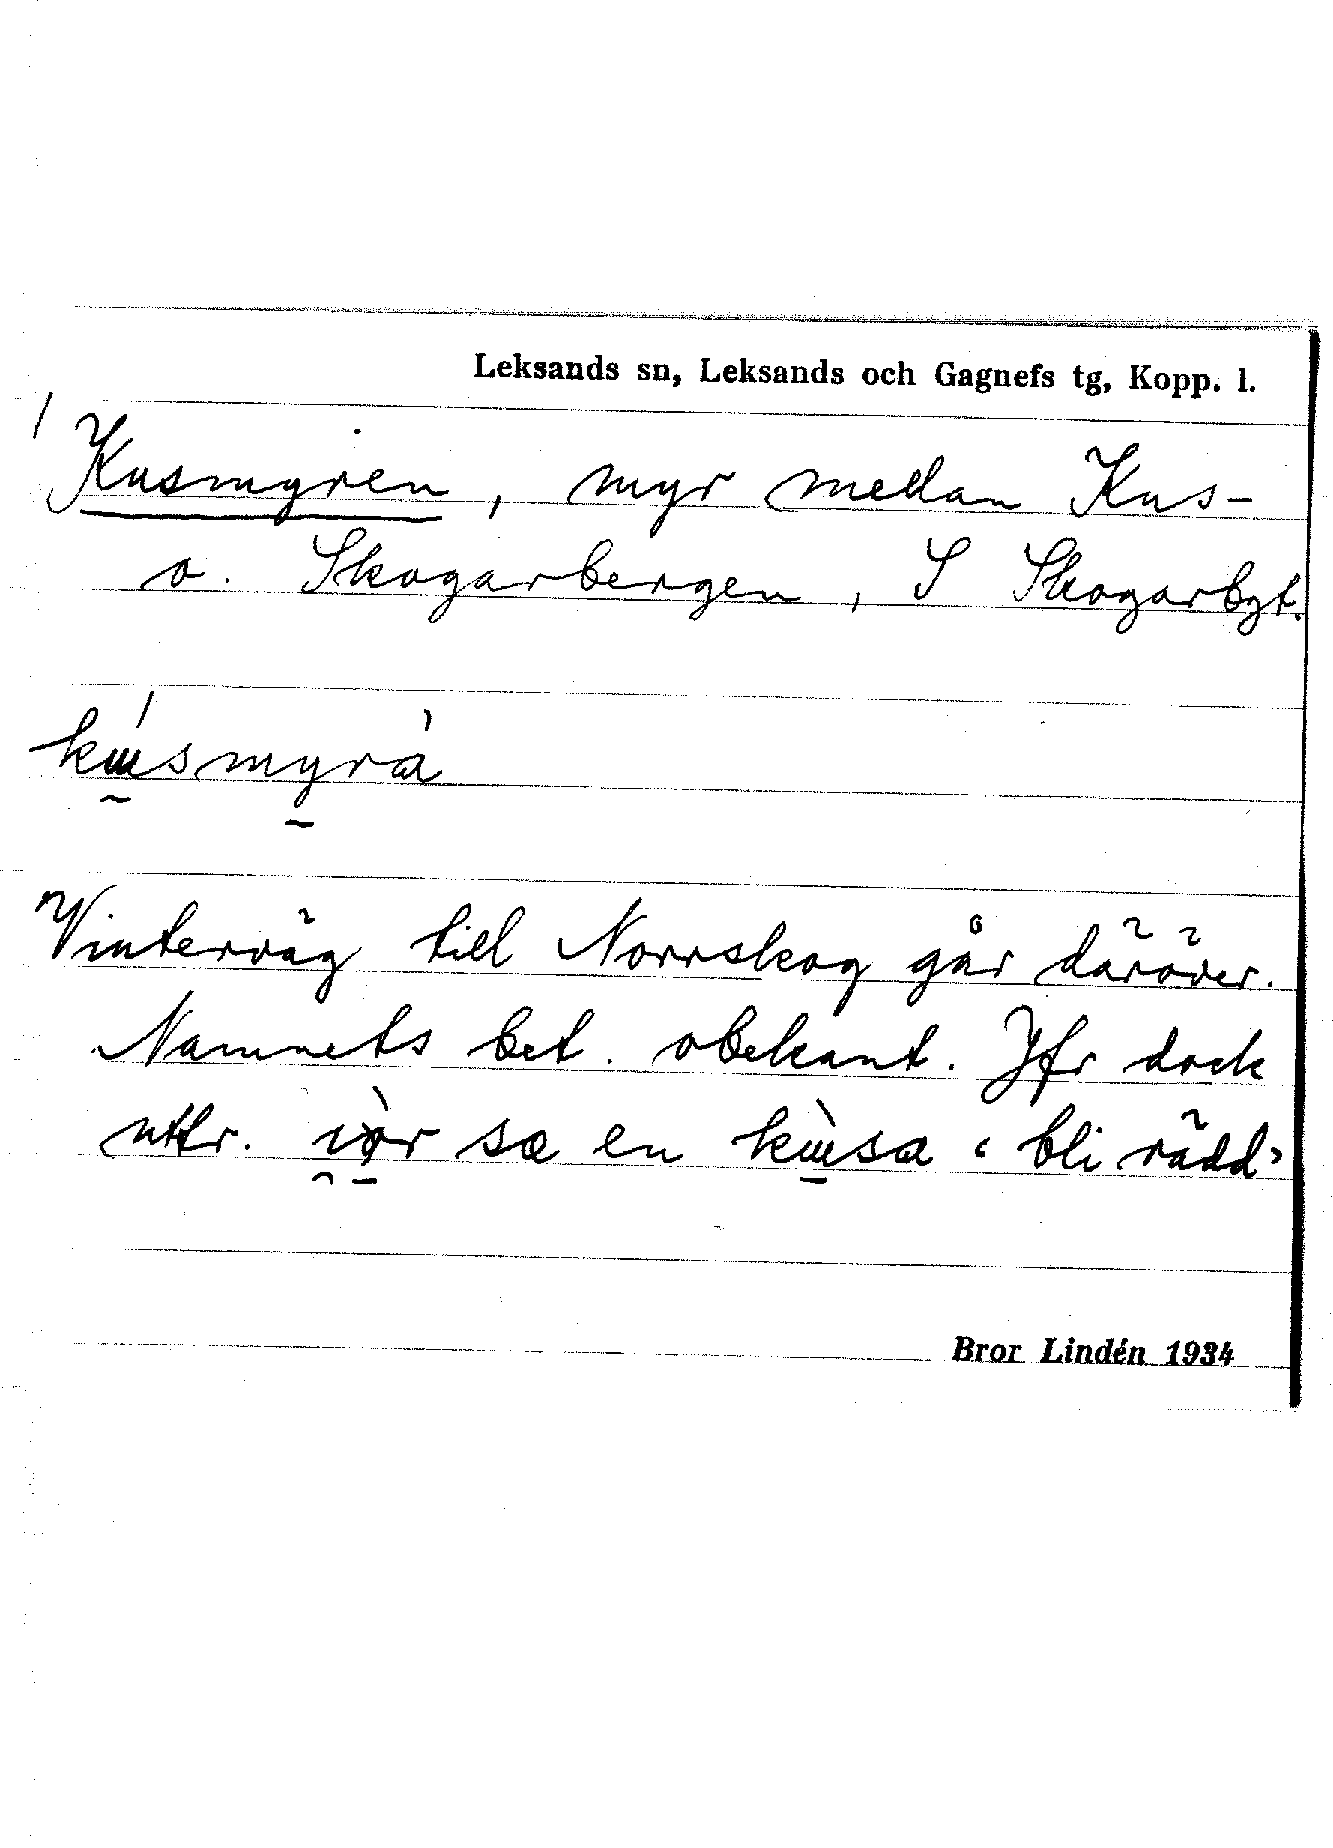 Leksands sn, Leksands och Gagnefs tg, Kopp. l.
Kusmyren, myr mellan Kus-
o. Skogarbergen, S Skogarbgt.
kɯ́smyrà
Vinterväg till Norrskog går däröver.
Namnets bet. obekant. Jfr dock
uttr. sæ en kɯ̀sa ‹ bli rädd›
Bror Lindén 1934